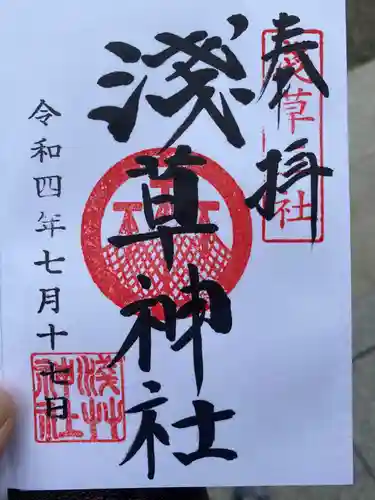 奉拝
浅草社
淺草神社
令和四年七月十七日
淺艸神社